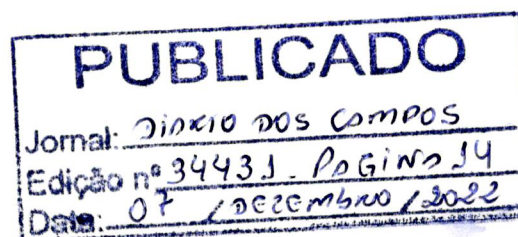 PUBLICADO
Jornal: DIARIO DOS CAMPOS
Edição nº 34431. PAGINA 14
Data: 07 / DEZEMBRO / 2022